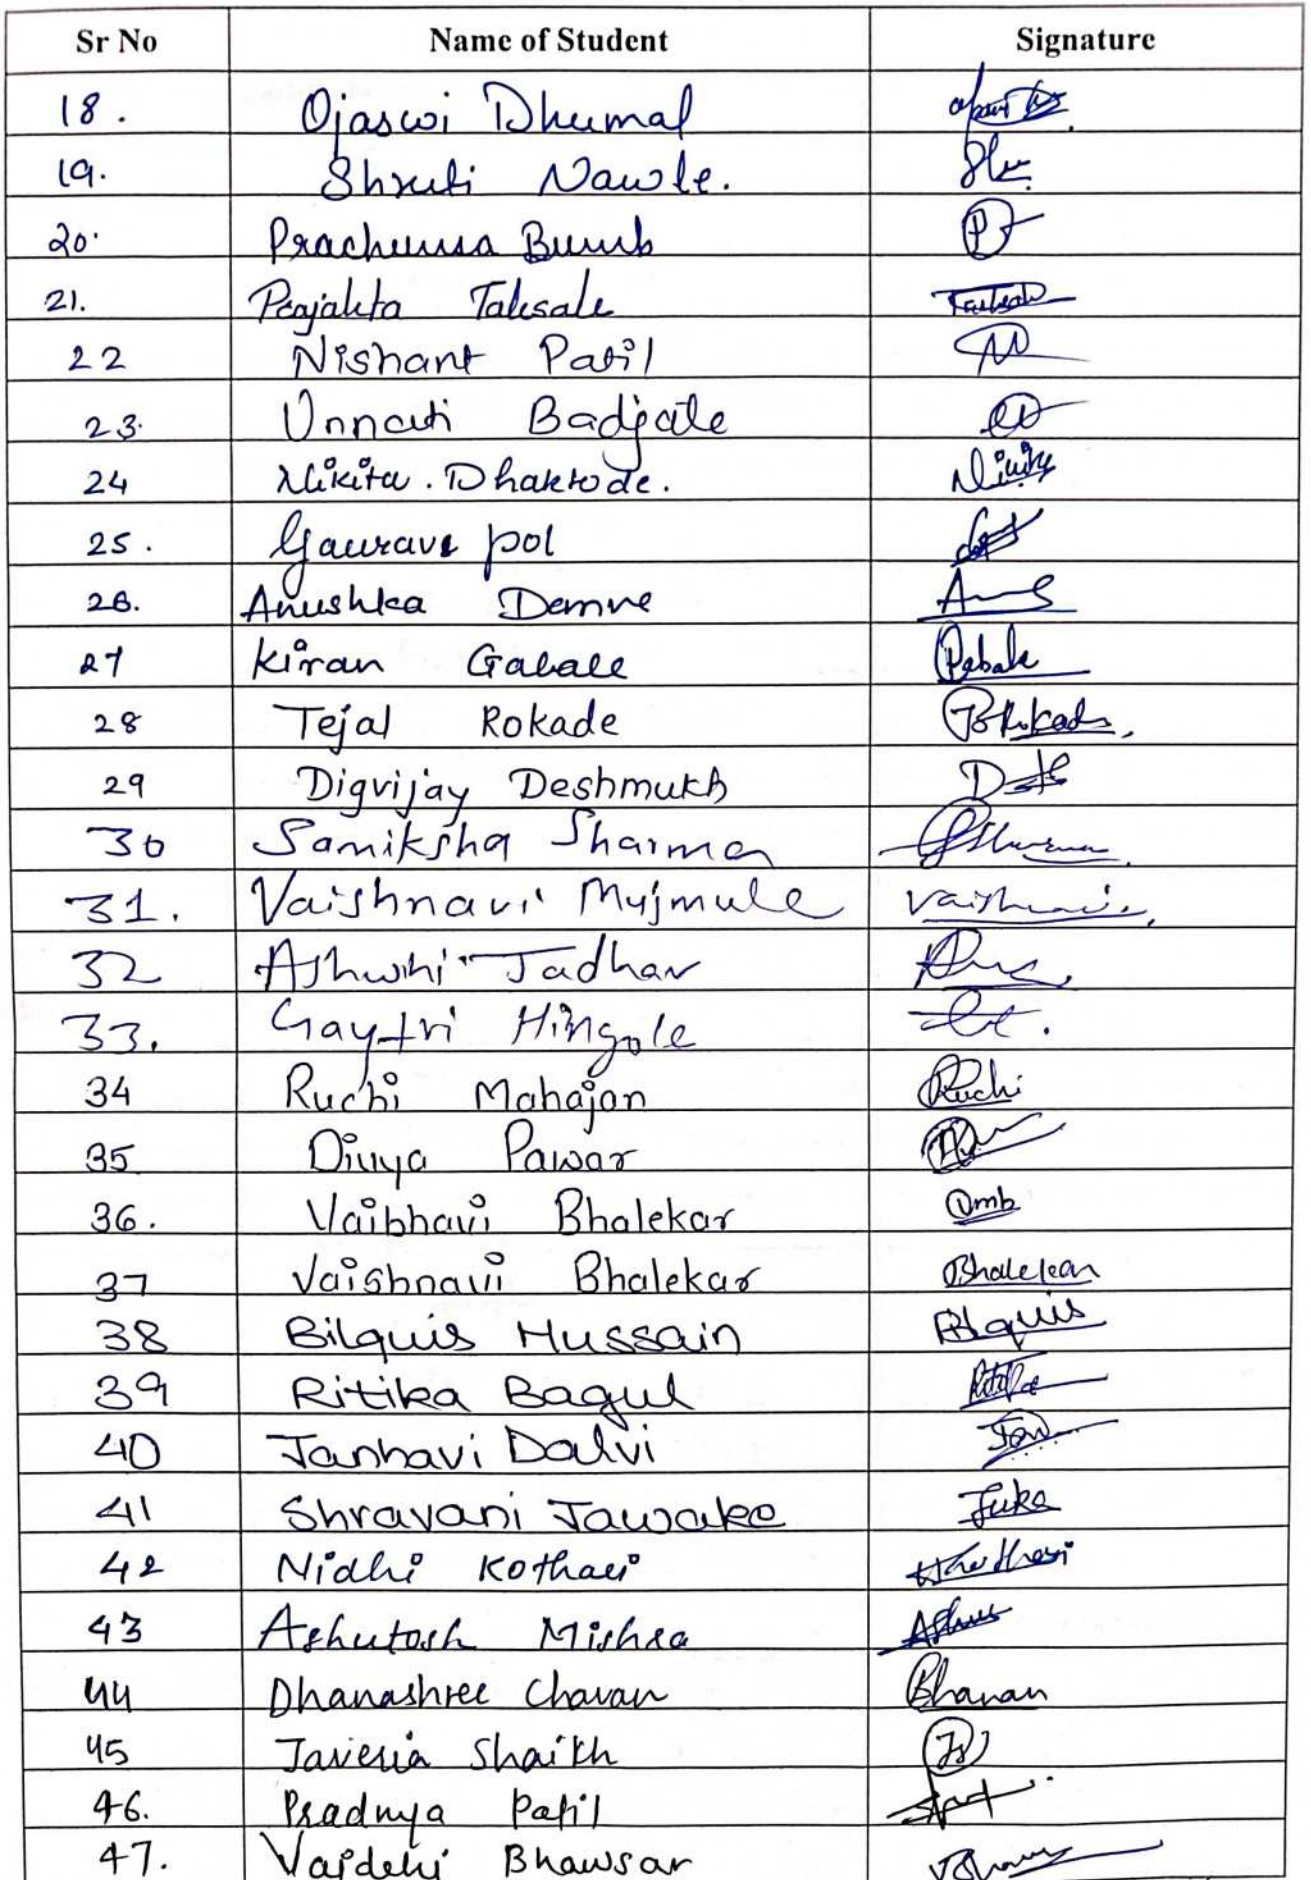 Sr No Name of Student Signature
18. Ojaswi Dhumal
19. Shruti Nawle.
20. Bumb
21. Prajakta Taksale
22 Nishant Patil
23. Unnati Badjate
24 Nikita. Dhakrode.
25. Gauravi pol
26. Anushka Demne
27 Kiran Gabale Gabale
28 Tejal Rokade TBRokade,
29 Digvijay Deshmukh
30 Samiksha Sharma Sharma
31. Vaishnavi Mujmule Vaishnavi.
32 Ashwini Jadhav
33. Gaytri Hingole
34 Ruchi Mahajan Ruchi
35 Divya Pawar
36. Vaibhavi Bhalekar Vmb
37 Vaishnavi Bhalekar Bhalekar
38 Bilquis Hussain Bilquis
39 Ritika Bagul Ritika
40 Janhavi Dalvi
41 Shravani Jawake
42 Nidhi Kothari
43 Ashutosh Mishra
44 Dhanashree Chavan Chavan
45 Javeria Shaikh
46. Pradnya Patil
47. Vaidehi Bhawsar